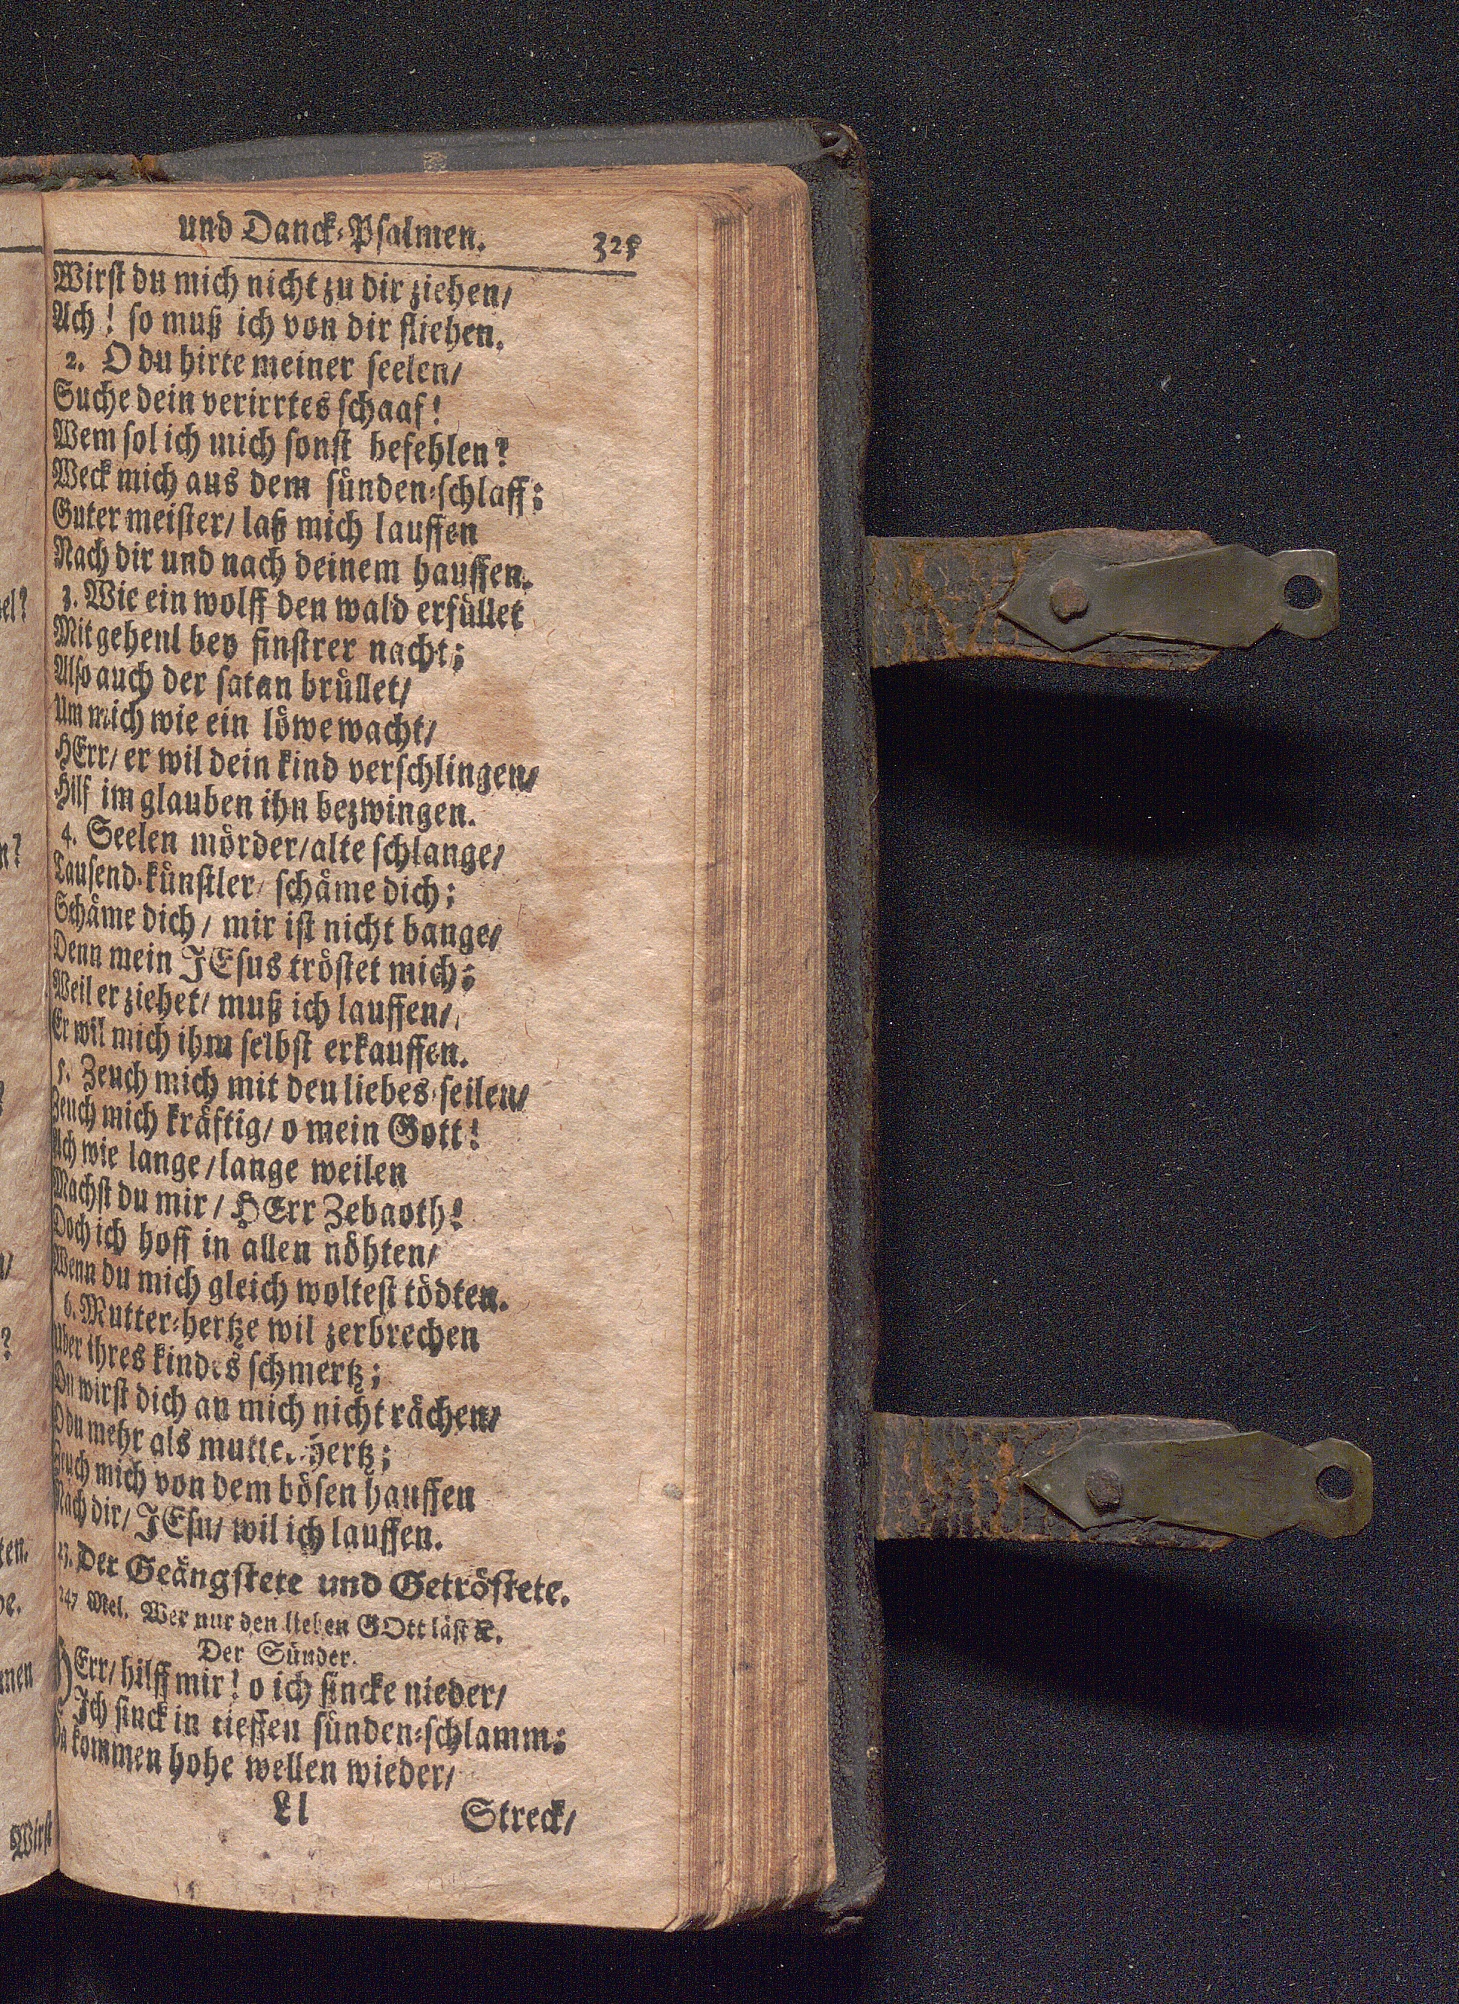 und Danck-Psalmen. 325
Wirst du mich nicht zu dir ziehen/
Ach! so muß ich von dir fliehen.
2. O du hirte meiner seelen/
Suche dein verirrtes schaaf!
Wem sol ich mich sonst befehlen?
Weck mich aus dem sünden-schlaff;
Guter meister/ laß mich lauffen
Nach dir und nach deinem hauffen.
3. Wie ein wolff den wald erfüllet
Mit geheul bey finstrer nacht;
Also auch der satan brüllet/
Um mich wie ein löwe wacht/
HErr/ er wil dein kind verschlingen/
Hilf im glauben ihn bezwingen.
4. Seelen mörder/ alte schlange/
Tausend-künstler/ schäme dich;
Schäme dich/ mir ist nicht bange/
Denn mein JEsus tröstet mich;
Weil er ziehet/ muß ich lauffen/
Er wil mich ihm selbst erkauffen.
5. Zeuch mich mit den liebes-seilen/
Zeuch mich kräftig/ o mein Gott!
Ach wie lange/ lange weilen
Machst du mir/ HErr Zebaoth!
Doch ich hoff in allen nöhten/
Wenn du mich gleich woltest tödten.
6. Mutter-hertze wil zerbrechen
Uber ihres kindes schmertz;
Du wirst dich an mich nicht rächen/
O du mehr als mutter-hertz;
Zeuch mich von dem bösen hauffen
Nach dir/ JEsu/ wil ich lauffen.
23. Der Geängstete und Getröstete.
247 Mel. Wer nur den lieben GOtt läst &c.
Der Sünder.
HErr/ hilff mir! o ich sincke nieder/
Ich sinck in tieffen sünden-schlamm;
Da kommen hohe wellen wieder/
Ll Streck/
Wirst